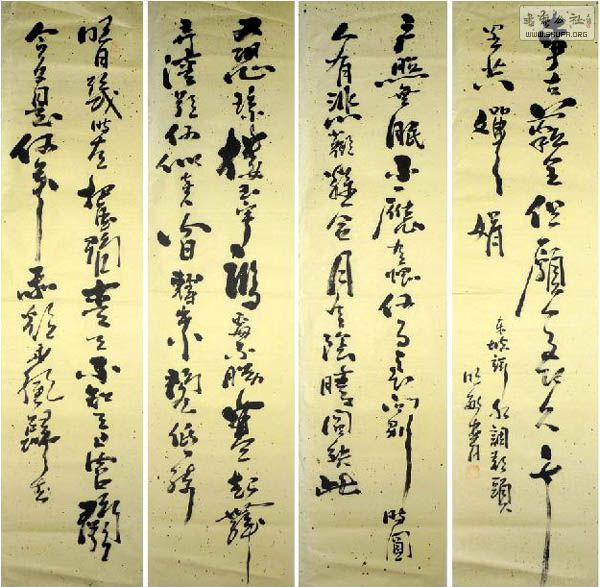 明月幾時有把酒問青天不知天上宮闕
今夕是何年我欲乘風歸去
又恐瓊樓玉宇高處不勝寒起舞
弄清影何似在人間轉朱閣低綺
户照無眠不應有恨何事長向别時圓
人有悲歡離合月有陰晴圓缺此
事古難全但願人長久千
里共嬋娟
东坡詞水調歌頭
WWW.SHUFA.ORG